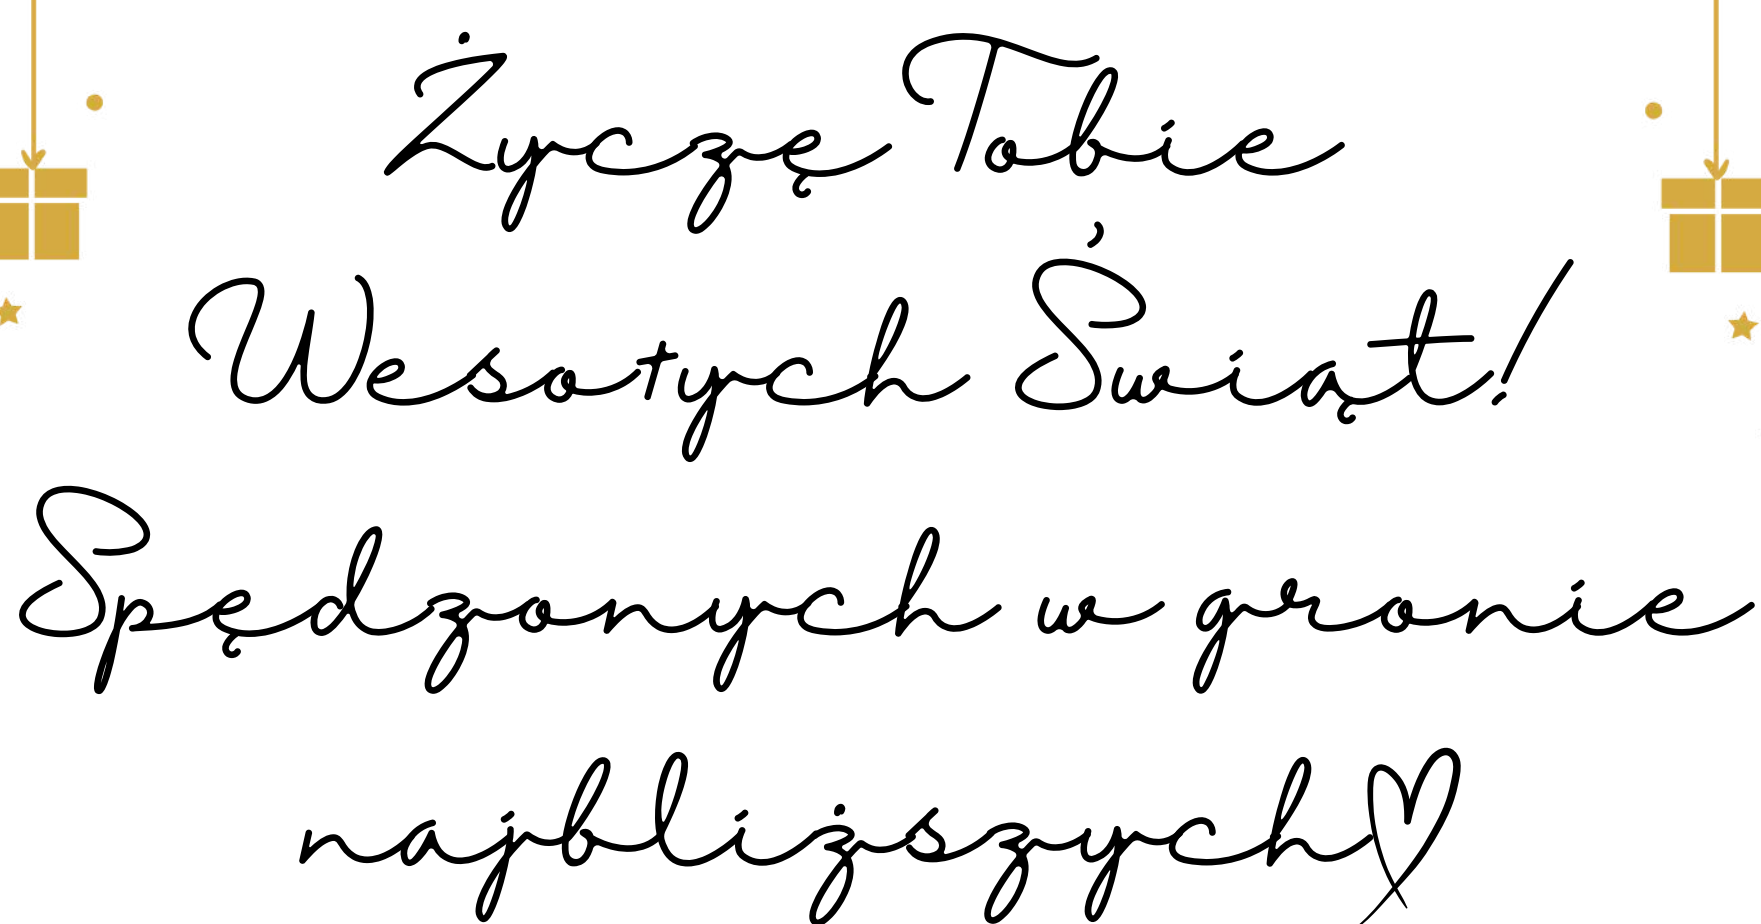 Życzę Tobie
Wesołych Świąt!
Spędzonych w gronie
najbliższych♡